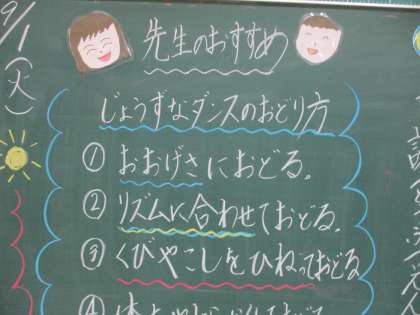 9/1(火)
先生のおすすめ
じょうずなダンスのおどり方
① おおげさにおどる。
② リズムに合わせておどる。
③ くびやこしをひねっておどる
④